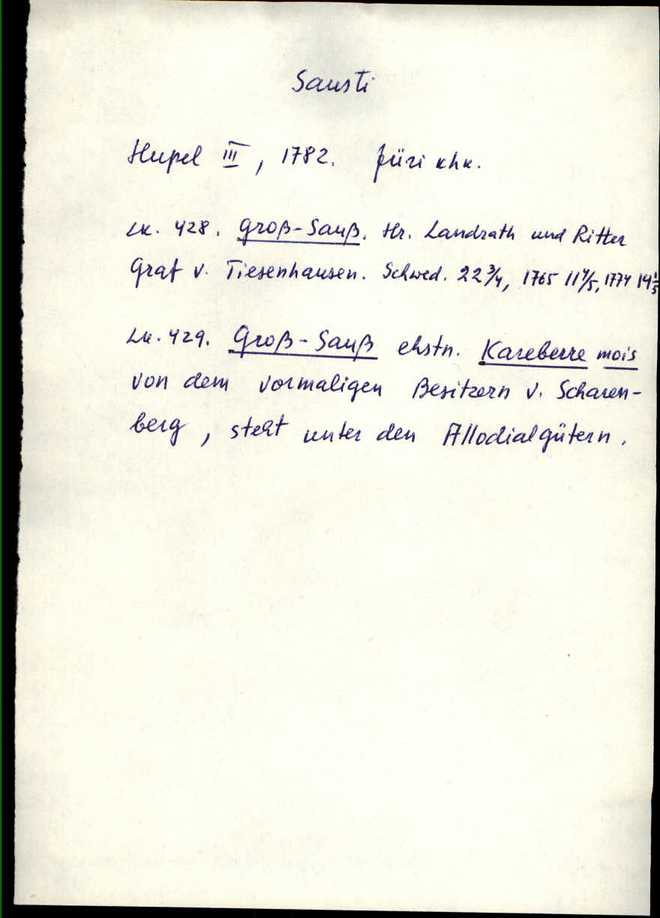 Sausti
Hupel III, 1782. Jüri khk.
Lk. 428. Groß-Sauß. Hr. Landrath und Ritter
Graf v. Tiesenhausen. Schwed. 22 3/4, 1765 11 4/5, 1774 14 1/5
Lk. 429. Groß-Sauß ehstn. Kareberre mois
von dem vormaligen Besitzern v. Scharen-
berg, steht unter den Allodialgütern.